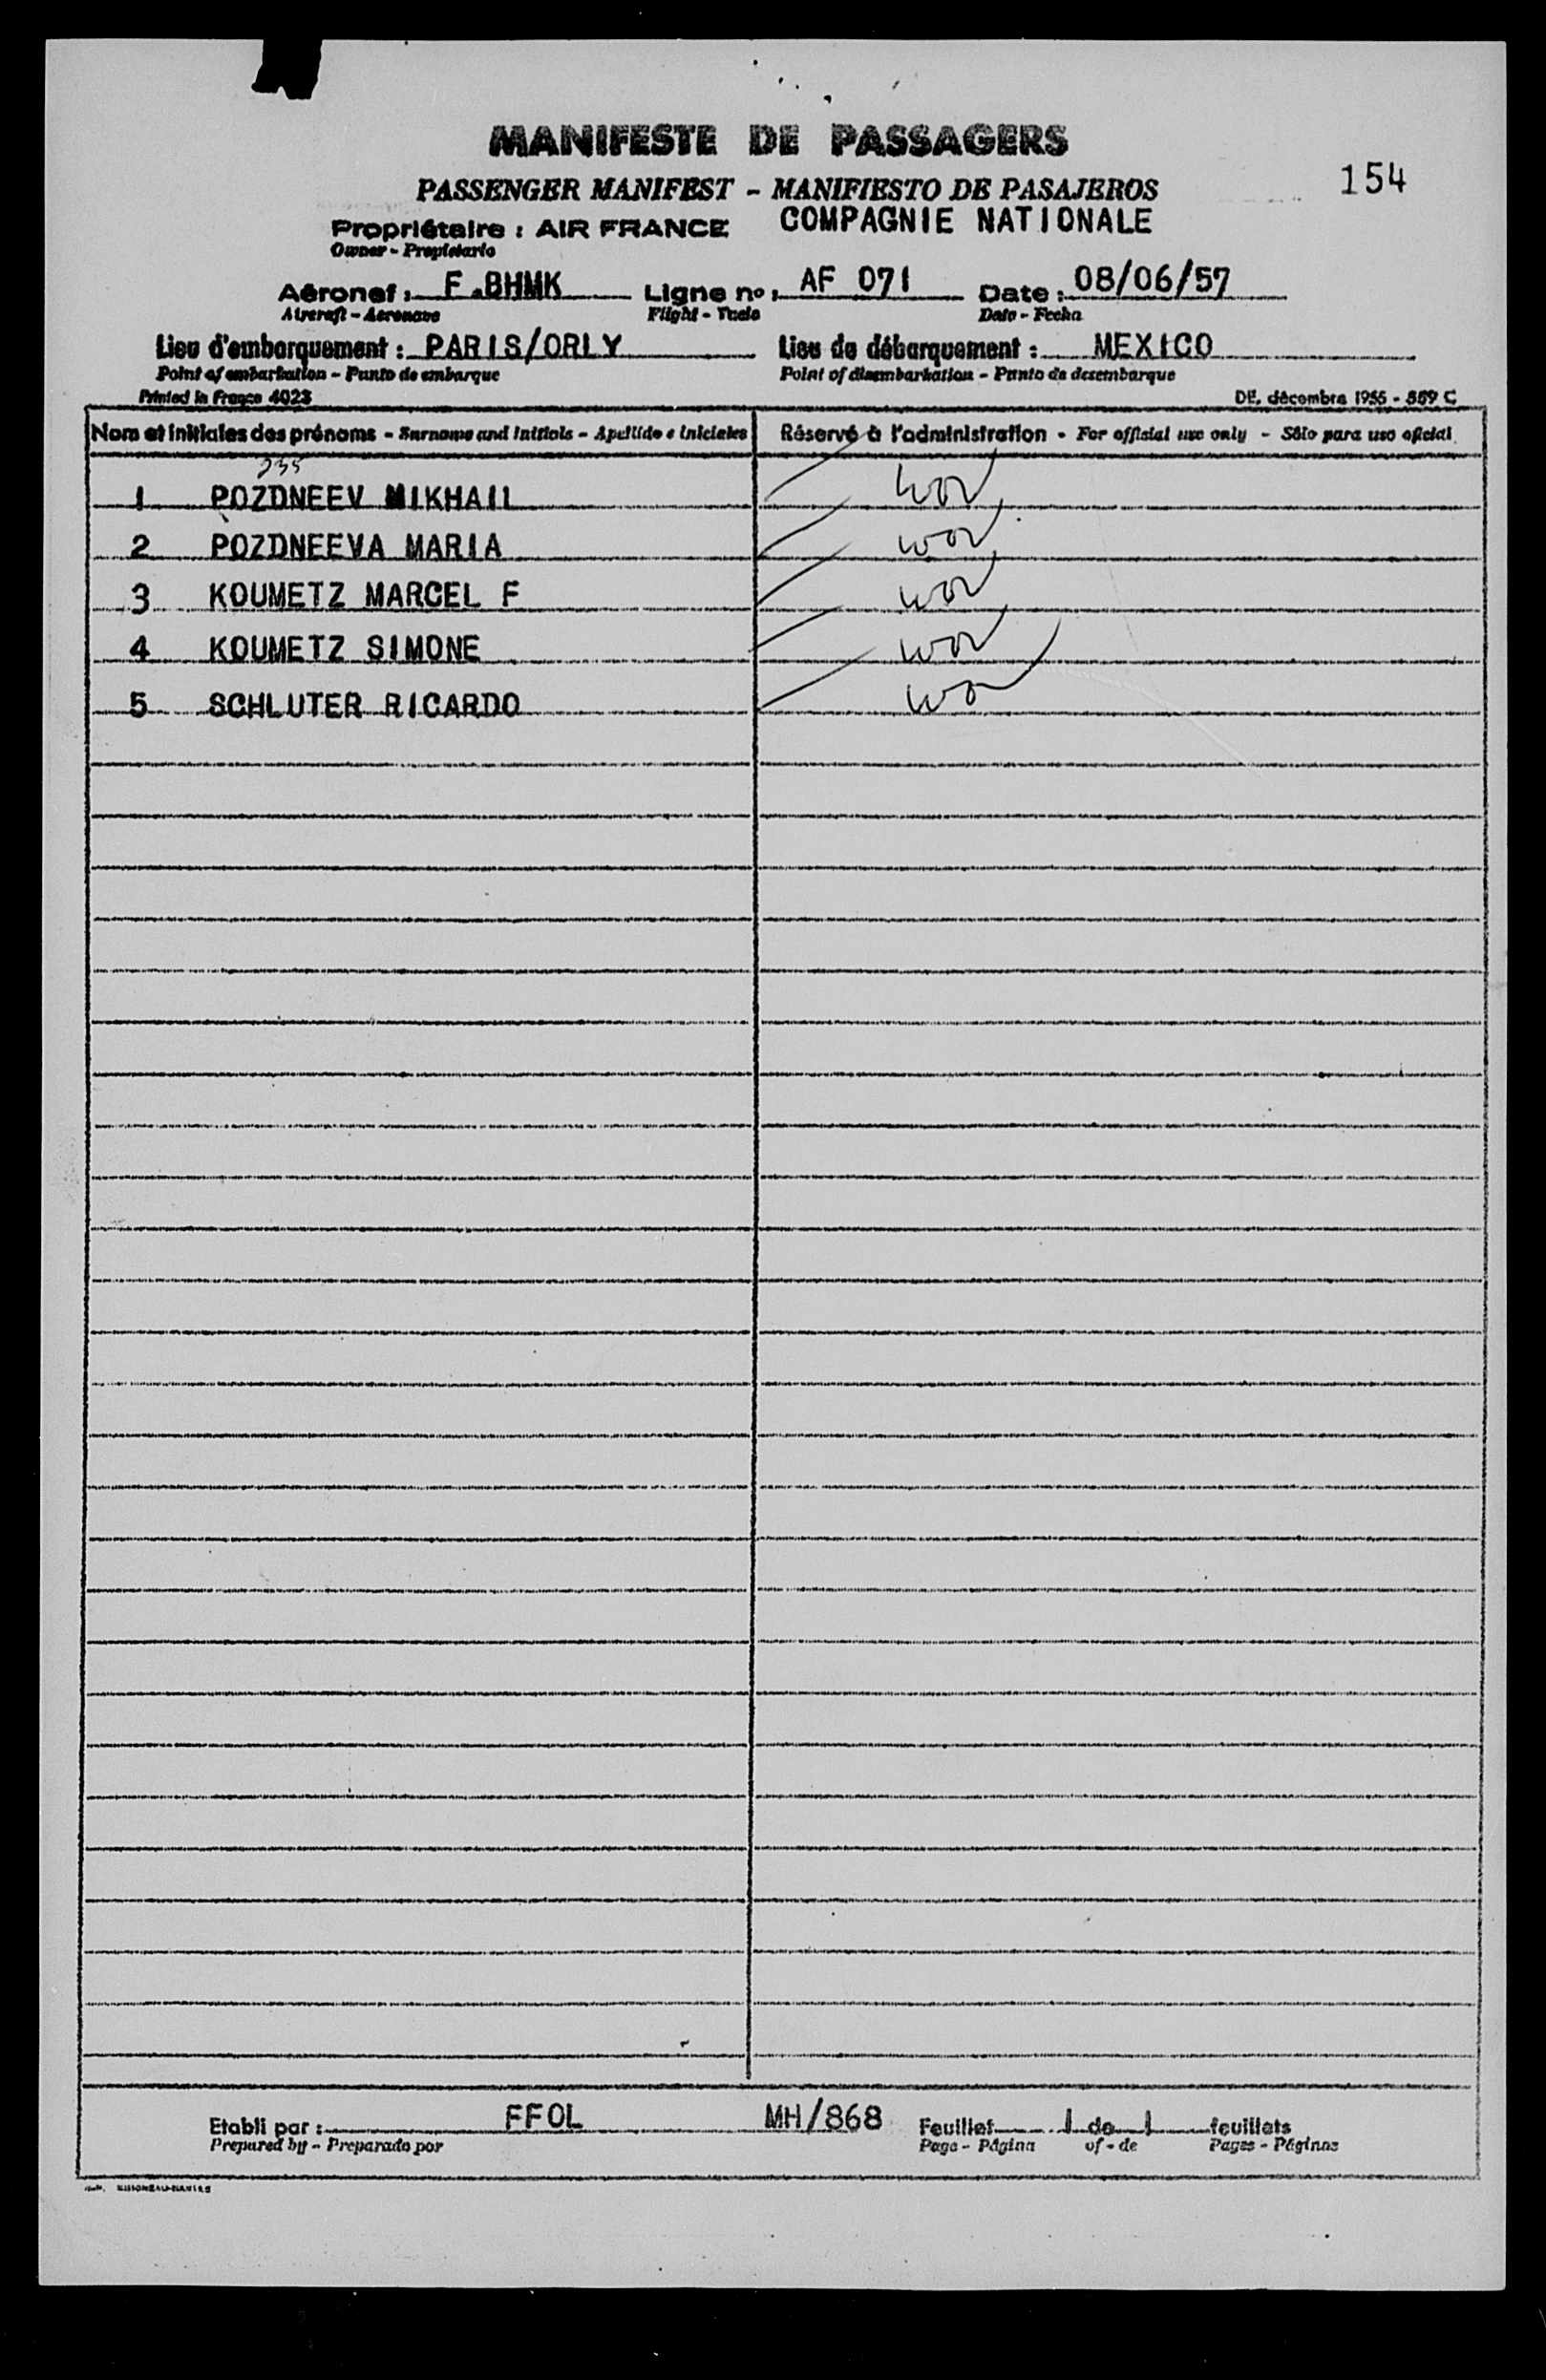 MANIFESTE DE PASSAGERS
PASSENGER MANIFEST - MANIFIESTO DE PASAJEROS
154
Propriétaire : AIR FRANCE COMPAGNIE NATIONALE
Owner - Propietario
Aéronef : F.BHMK Ligne no : AF 071 Date : 08/06/57
Aircraft - Aeronave Flight - Vuelo Date - Fecha
Lieu d'embarquement : PARIS/ORLY Lieu de débarquement : MEXICO
Point of embarkation - Punto de embarque Point of disembarkation - Punto de desembarque
Printed in France 4023 DE, décembre 1955 - 859 C
Nom et initiales des prénoms - Surname and initials - Apellido e iniciales Réservé à l'administration - For official use only - Sólo para uso oficial
235
1 POZDNEEV MIKHAIL
2 POZDNEEVA MARIA
3 KOUMETZ MARCEL F
4 KOUMETZ SIMONE
5 SCHLUTER RICARDO
Etabli par : FFOL MH/868 Feuillet 1 de 1 feuillets
Prepared by - Preparado por Page - Página of - de Pages - Páginas